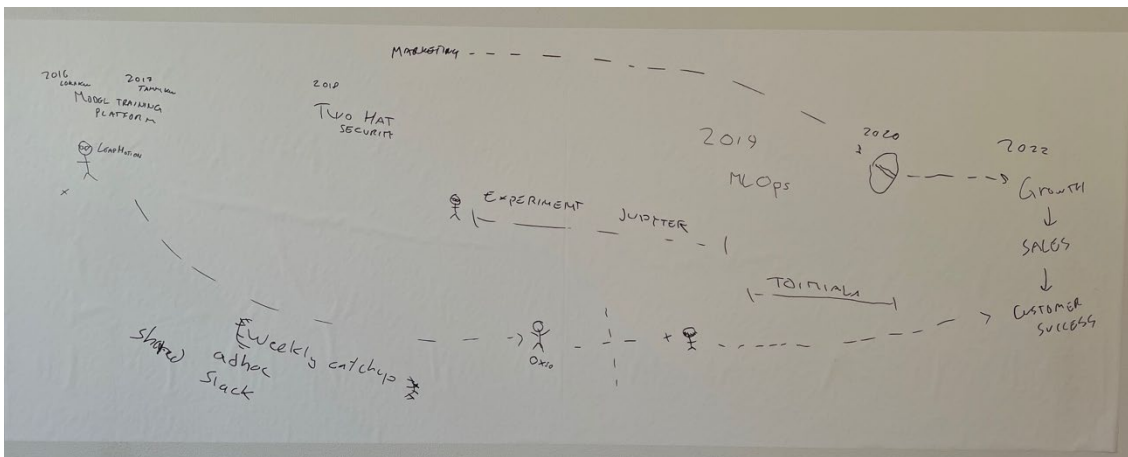 MARKETING
2016
2017
MODEL TRAINING
PLATFORM
LEAPMOTION
2018
TWO HAT
SECURITY
2019
MLOps
2020
2022
Growth
SALES
CUSTOMER
SUCCESS
EXPERIMENT JUPYTER
TOIMIALA
Weekly catchup
shared adhoc
Slack